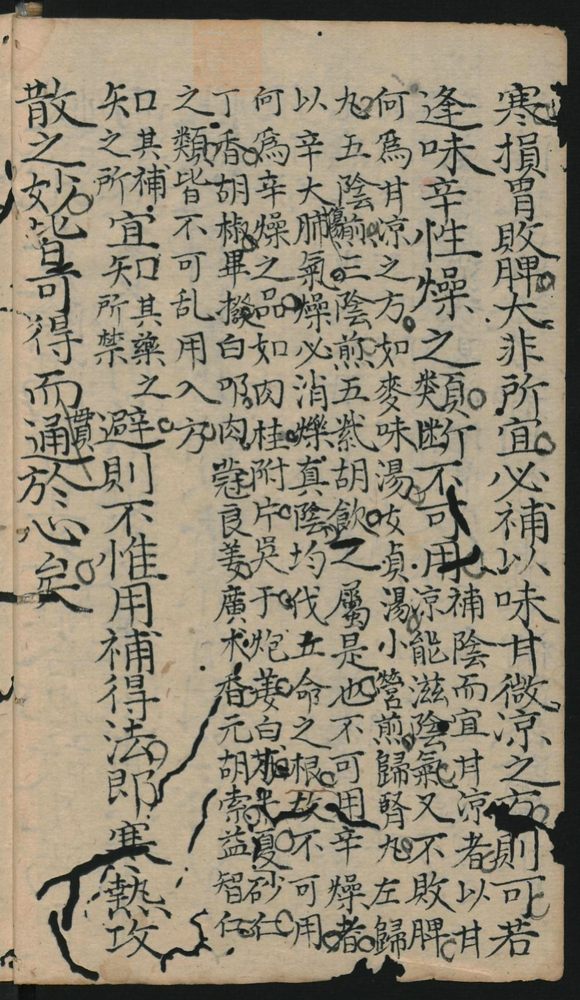 寒損胃敗脾大非所宜必補以味甘微凉之方則可若
逢味辛性燥之類断不可用補陰而宜甘凉者以甘
凉能滋陰氣又不敗脾
何為甘凉之方如麥味湯女貞湯小營煎歸腎丸左歸
丸五陰煎三陰煎五紫胡飲之屬是也不可用辛燥者
以辛大肺氣燥必消爍真陰均伐五命之根故不可用
何為辛燥之品如肉桂附片吴于炮姜白朮夏砂仁
丁香胡椒畢撥白叩肉蔻良姜廣木香元胡索益智仁
之類皆不可乱用入方
口其補之所宜口其藥之
矢之所矢所禁避則不惟用補得法即寒熱攻
散之妙皆可得而通貫於心矣